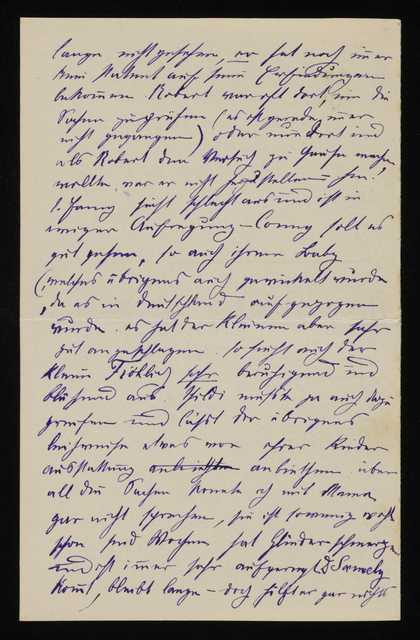 lange nicht gesehen, er hat noch immer
kein Patent auf seine Erfindungen
bekommen Robert war oft dort, um die
Sachen zu prüfen (es ist gerade immer
nicht gegangen) oder nur dort und
als Robert den Versuch zu Hause machen
wollte, war er nicht
Fanny sieht schlecht aus und ist in
ewiger Aufregung – Conny soll es
gut gehen, so auch ihrem Baby
(welches übrigens auch gewickelt wurde
da es in Deutschland aufgezogen
wurde. es hat der Kleinen aber sehr
gut angeschlagen. so sieht auch der
kleine Fröhlich sehr beruhigend und
blühend aus. mußte ja auch dazu
und läßt Dir übrigens
leihweise etwas von ihrer Kinder
ausstattung anbiethen über
all die Sachen konnte ich mit Mama
gar nicht sprechen, sie ist so wenig wohl
schon seit Wochen hat Gliederschmerzen
und ist immer sehr aufgeregt D Samely
kommt, bleibt lange – doch hilft er gar nichts